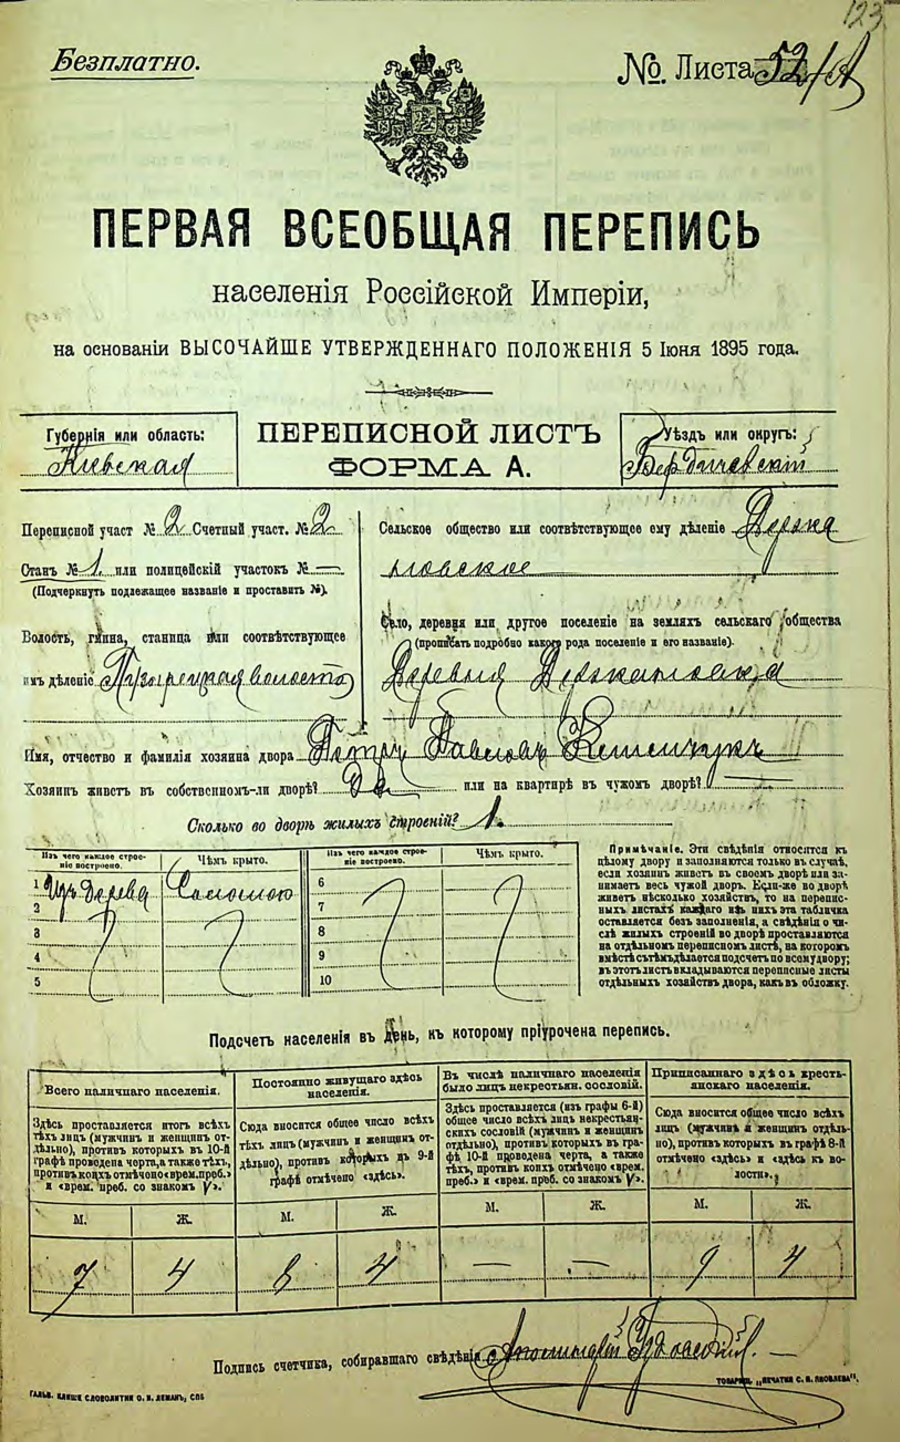 123
Безплатно.
№. Листа 52/А
ПЕРВАЯ ВСЕОБЩАЯ ПЕРЕПИСЬ
населенія Россійской Имперіи,
на основаніи ВЫСОЧАЙШЕ УТВЕРЖДЕННАГО ПОЛОЖЕНІЯ 5 Іюня 1895 года.
Губернія или область:
Кіевская
ПЕРЕПИСНОЙ ЛИСТЪ
ФОРМА А.
Уѣздъ или округъ:
Бердичевскій
Переписной участ № 2 Счетный участ. № 2
Станъ № 1. или полицейскій участокъ № —
(Подчеркнуть подлежащее названіе и проставить №).
Волость, гмина, станица или соотвѣтствующее
имъ дѣленіе волость
Сельское общество или соотвѣтствующее ему дѣленіе Держа
новское
Село, деревня или другое поселеніе на земляхъ сельскаго общества
(прописать подробно какого рода поселеніе и его названіе).
Деревня Держановка
Имя, отчество и фамилія хозяина двора Петръ Павловъ
Хозяинъ живетъ въ собственномъ-ли дворѣ? Да или на квартирѣ въ чужомъ дворѣ? —
Сколько во дворѣ жилыхъ строеній? 1.
Изъ чего каждое строеніе построено.
Чѣмъ крыто.
Изъ чего каждое строеніе построено.
Чѣмъ крыто.
1 Изъ дерева Соломою
2
3
4
5
6
7
8
9
10
Примѣчаніе. Эти свѣдѣнія относятся къ
цѣлому двору и заполняются только въ случаѣ,
если хозяинъ живетъ въ своемъ дворѣ или за-
нимаетъ весь чужой дворъ. Если-же во дворѣ
живетъ нѣсколько хозяйствъ, то на перепис-
ныхъ листахъ каждаго изъ нихъ эта табличка
оставляется безъ заполненія, а свѣдѣнія о чи-
слѣ жилыхъ строеній во дворѣ проставляются
на отдѣльномъ переписномъ листѣ, на которомъ
вмѣстѣ съ тѣмъ дѣлается подсчетъ по всему двору;
въ этотъ листъ вкладываются переписные листы
отдѣльныхъ хозяйствъ двора, какъ въ обложку.
Подсчетъ населенія въ день, къ которому пріурочена перепись.
Всего наличнаго населенія.
Здѣсь проставляется итогъ всѣхъ
тѣхъ лицъ (мужчинъ и женщинъ от-
дѣльно), противъ которыхъ въ 10-й
графѣ проведена черта, а также тѣхъ,
противъ коихъ отмѣчено «врем. преб.»
и «врем. преб. со знакомъ V».
Постоянно живущаго здѣсь
населенія.
Сюда вносится общее число всѣхъ
тѣхъ лицъ (мужчинъ и женщинъ от-
дѣльно), противъ которыхъ въ 9-й
графѣ отмѣчено «здѣсь».
Въ числѣ наличнаго населенія
было лицъ некрестьян. сословій.
Здѣсь проставляется (изъ графы 6-й)
общее число всѣхъ лицъ некрестьян-
скихъ сословій (мужчинъ и женщинъ
отдѣльно), противъ которыхъ въ гра-
фѣ 10-й проведена черта, а также
тѣхъ, противъ коихъ отмѣчено «врем.
преб.» и «врем. преб. со знакомъ V».
Приписаннаго здѣсь кресть-
янскаго населенія.
Сюда вносится общее число всѣхъ
лицъ (мужчинъ и женщинъ отдѣль-
но), противъ которыхъ въ графѣ 8-й
отмѣчено «здѣсь» и «здѣсь къ во-
лости».
М. Ж. М. Ж. М. Ж. М. Ж.
7 4 8 4 — — 9 4
Подпись счетчика, собиравшаго свѣдѣнія
ГАЛЬВ. КЛИШЕ СЛОВОЛИТНИ О. И. ЛЕМАНЪ, СПБ
ТОВАРИЩ. „ПЕЧАТНЯ С. П. ЯКОВЛЕВА".